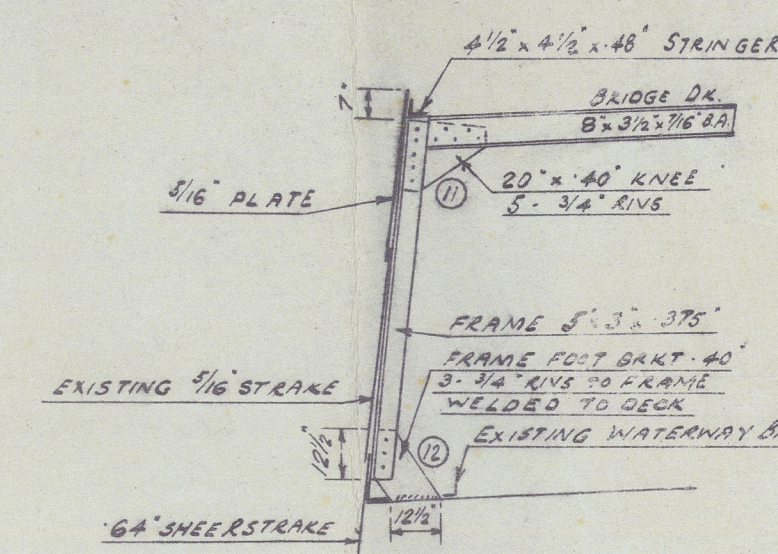 4½" x 4½" x ·48" STRINGER
7"
BRIDGE DK.
8" x 3½" x 7/16" B.A.
5/16" PLATE
20" x ·40" KNEE
5 - 3/4" RIVS
11
FRAME 5" x 3" x ·375"
FRAME FOOT BRKT ·40"
3 - 3/4" RIVS TO FRAME
WELDED TO DECK
EXISTING 5/16" STRAKE
EXISTING WATERWAY
12½"
12
12½"
·64" SHEERSTRAKE